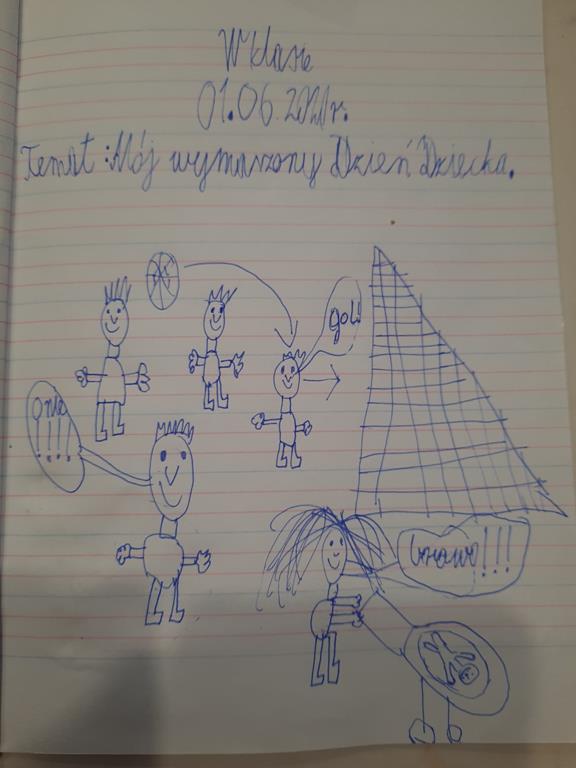 W klasie
01.06.2021r.
Temat :Mój wymarzony Dzień Dziecka.
gol!
o nie
!!!!
brawo!!!